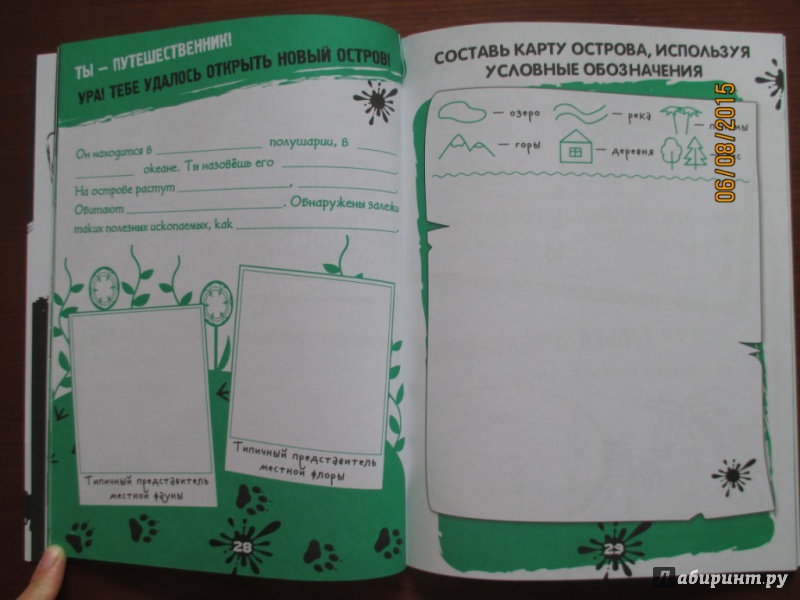 ТЫ — ПУТЕШЕСТВЕННИК!
УРА! ТЕБЕ УДАЛОСЬ ОТКРЫТЬ НОВЫЙ ОСТРОВ!
Он находится в ____ полушарии, в ____
____ океане. Ты назовёшь его ____.
На острове растут ____, ____.
Обитают ____. Обнаружены залежи
таких полезных ископаемых, как ____.
Типичный представитель
местной фауны
Типичный представитель
местной флоры
28
СОСТАВЬ КАРТУ ОСТРОВА, ИСПОЛЬЗУЯ
УСЛОВНЫЕ ОБОЗНАЧЕНИЯ
— озеро — река —
— горы — деревня
29
06/08/2015
Лабиринт.ру